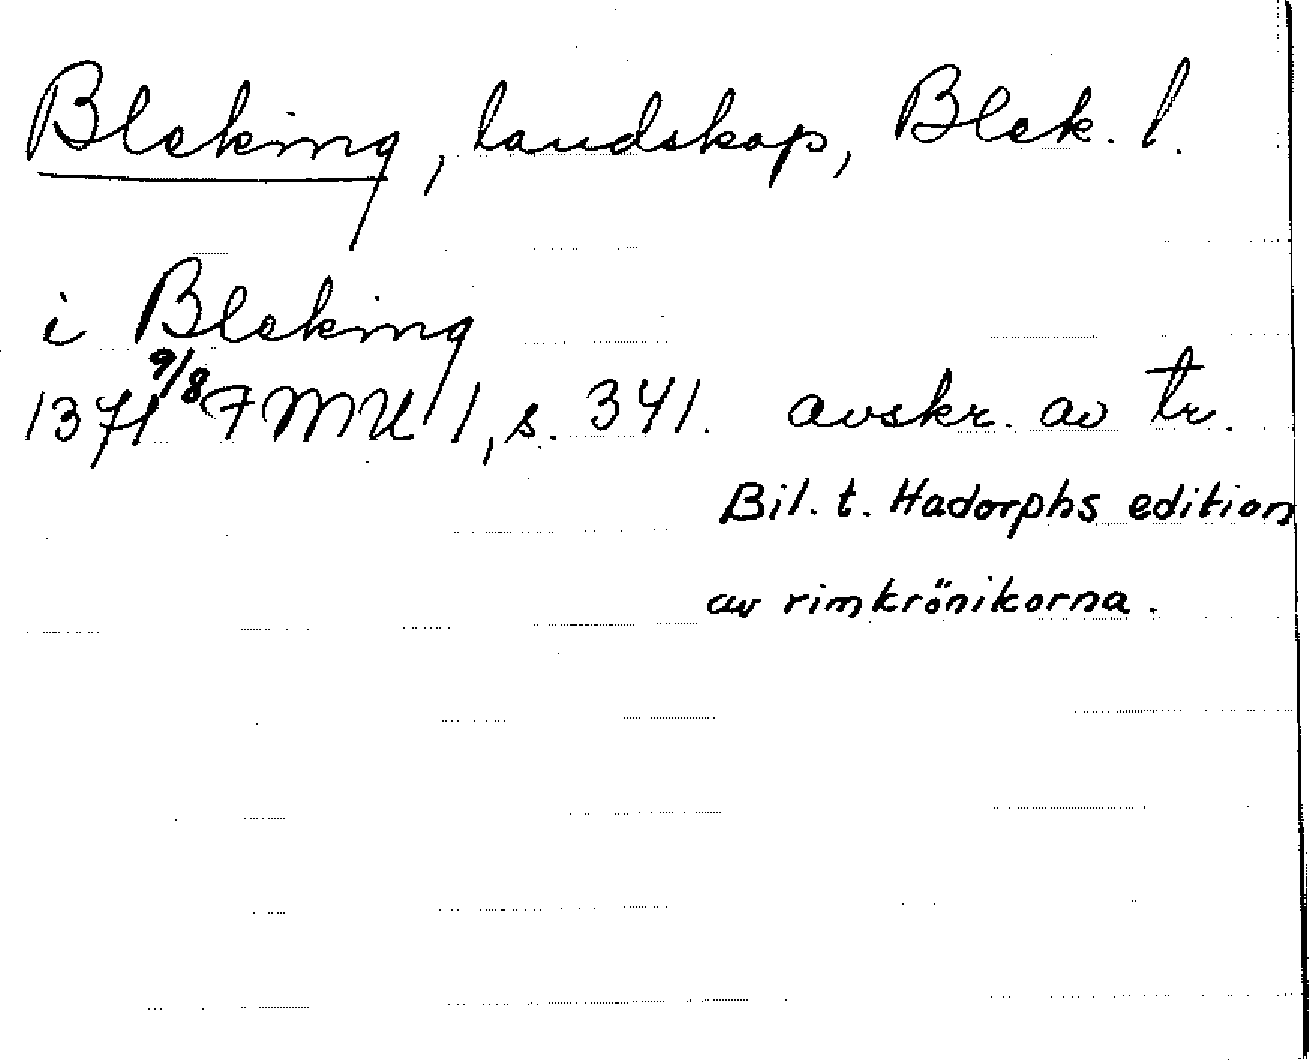 Bleking, landskap, Blek. l.
i Bleking
1371 9/8 FMU 1, s. 341. avskr. av tr.
Bil. t. Hadorphs edition
av rimkrönikorna.